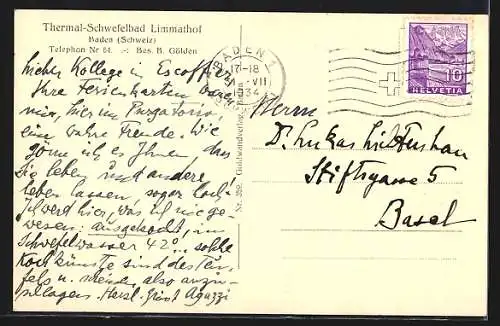 Thermal-Schwefelbad Limmathof
Baden (Schweiz)
Telephon Nr 64. Bes. B. Gölden
Lieber Kollege in Escoffier
Ihre Ferienkarten waren
mir, hier im Purgatorio,
eine wahre Freude. Wie
gönne ich es Ihnen, dass
Sie leben und andere
leben lassen, sogar
hier, was ich nie ge-
wesen: ausgekocht, im
Schwefelwasser 42° solche
Kochkünste sind des Teu-
fels u.
Herzl. Aguzzi
BADEN 1
17-18
VII
1934
10
HELVETIA
Herrn
Dr. Lukas Lichtenhan
Stiftsgasse 5
Basel